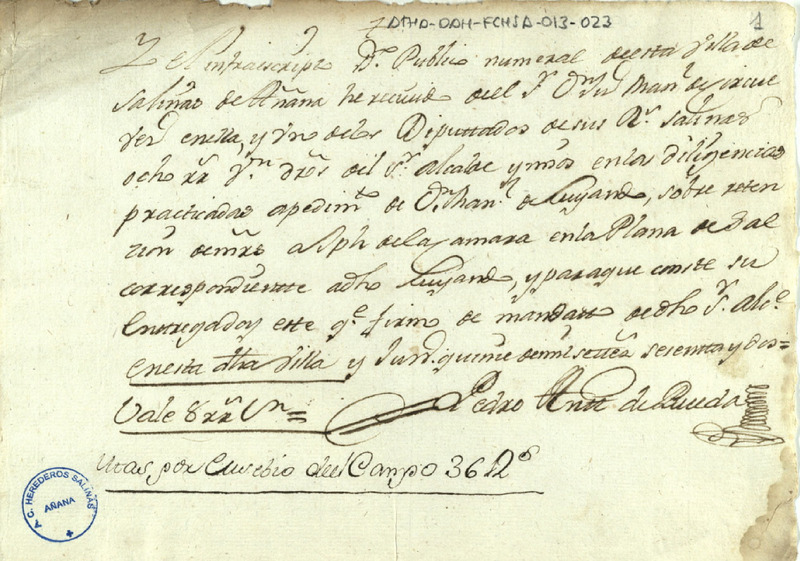 ATHA-DAH-FCHSA-013-023
1
Yo el infrascripto Dr. Publico numeral de esta Villa de
Salinas de Añana he recivido del Sr. Dn. Manl. de
Ver. en ella, y Vno de los Diputtados de sus Rs. Salinas
ocho rr Vn. drôs del Sr. Alcalde y mios en las diligencias
practicadas a pedimto. de Dn. Man. de Luyando, sobre reten
cion de mrs. a Jph de la Camara en la Plana de Sal
correspondiente a dho Luyando, y para que conste su
Entrega doy este qe. firmo de mandato de dho Sr. Alce.
en esta dha Villa y Jun. quinze de mil settes. sesenta y dos=
Vale 8 rr Vn=
Pedro Antt de Rueda
Mas por Eusebio del Campo 36 Rs
A. C. HEREDEROS SALINAS
AÑANA